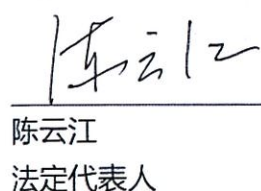 陈云江
陈云江
法定代表人